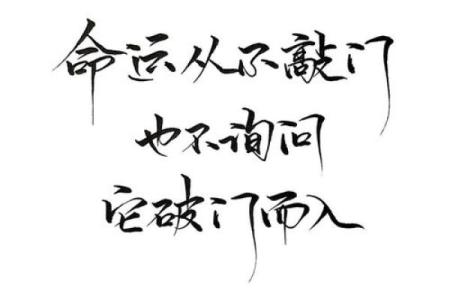 命运从不敲门
也不询问
它破门而入